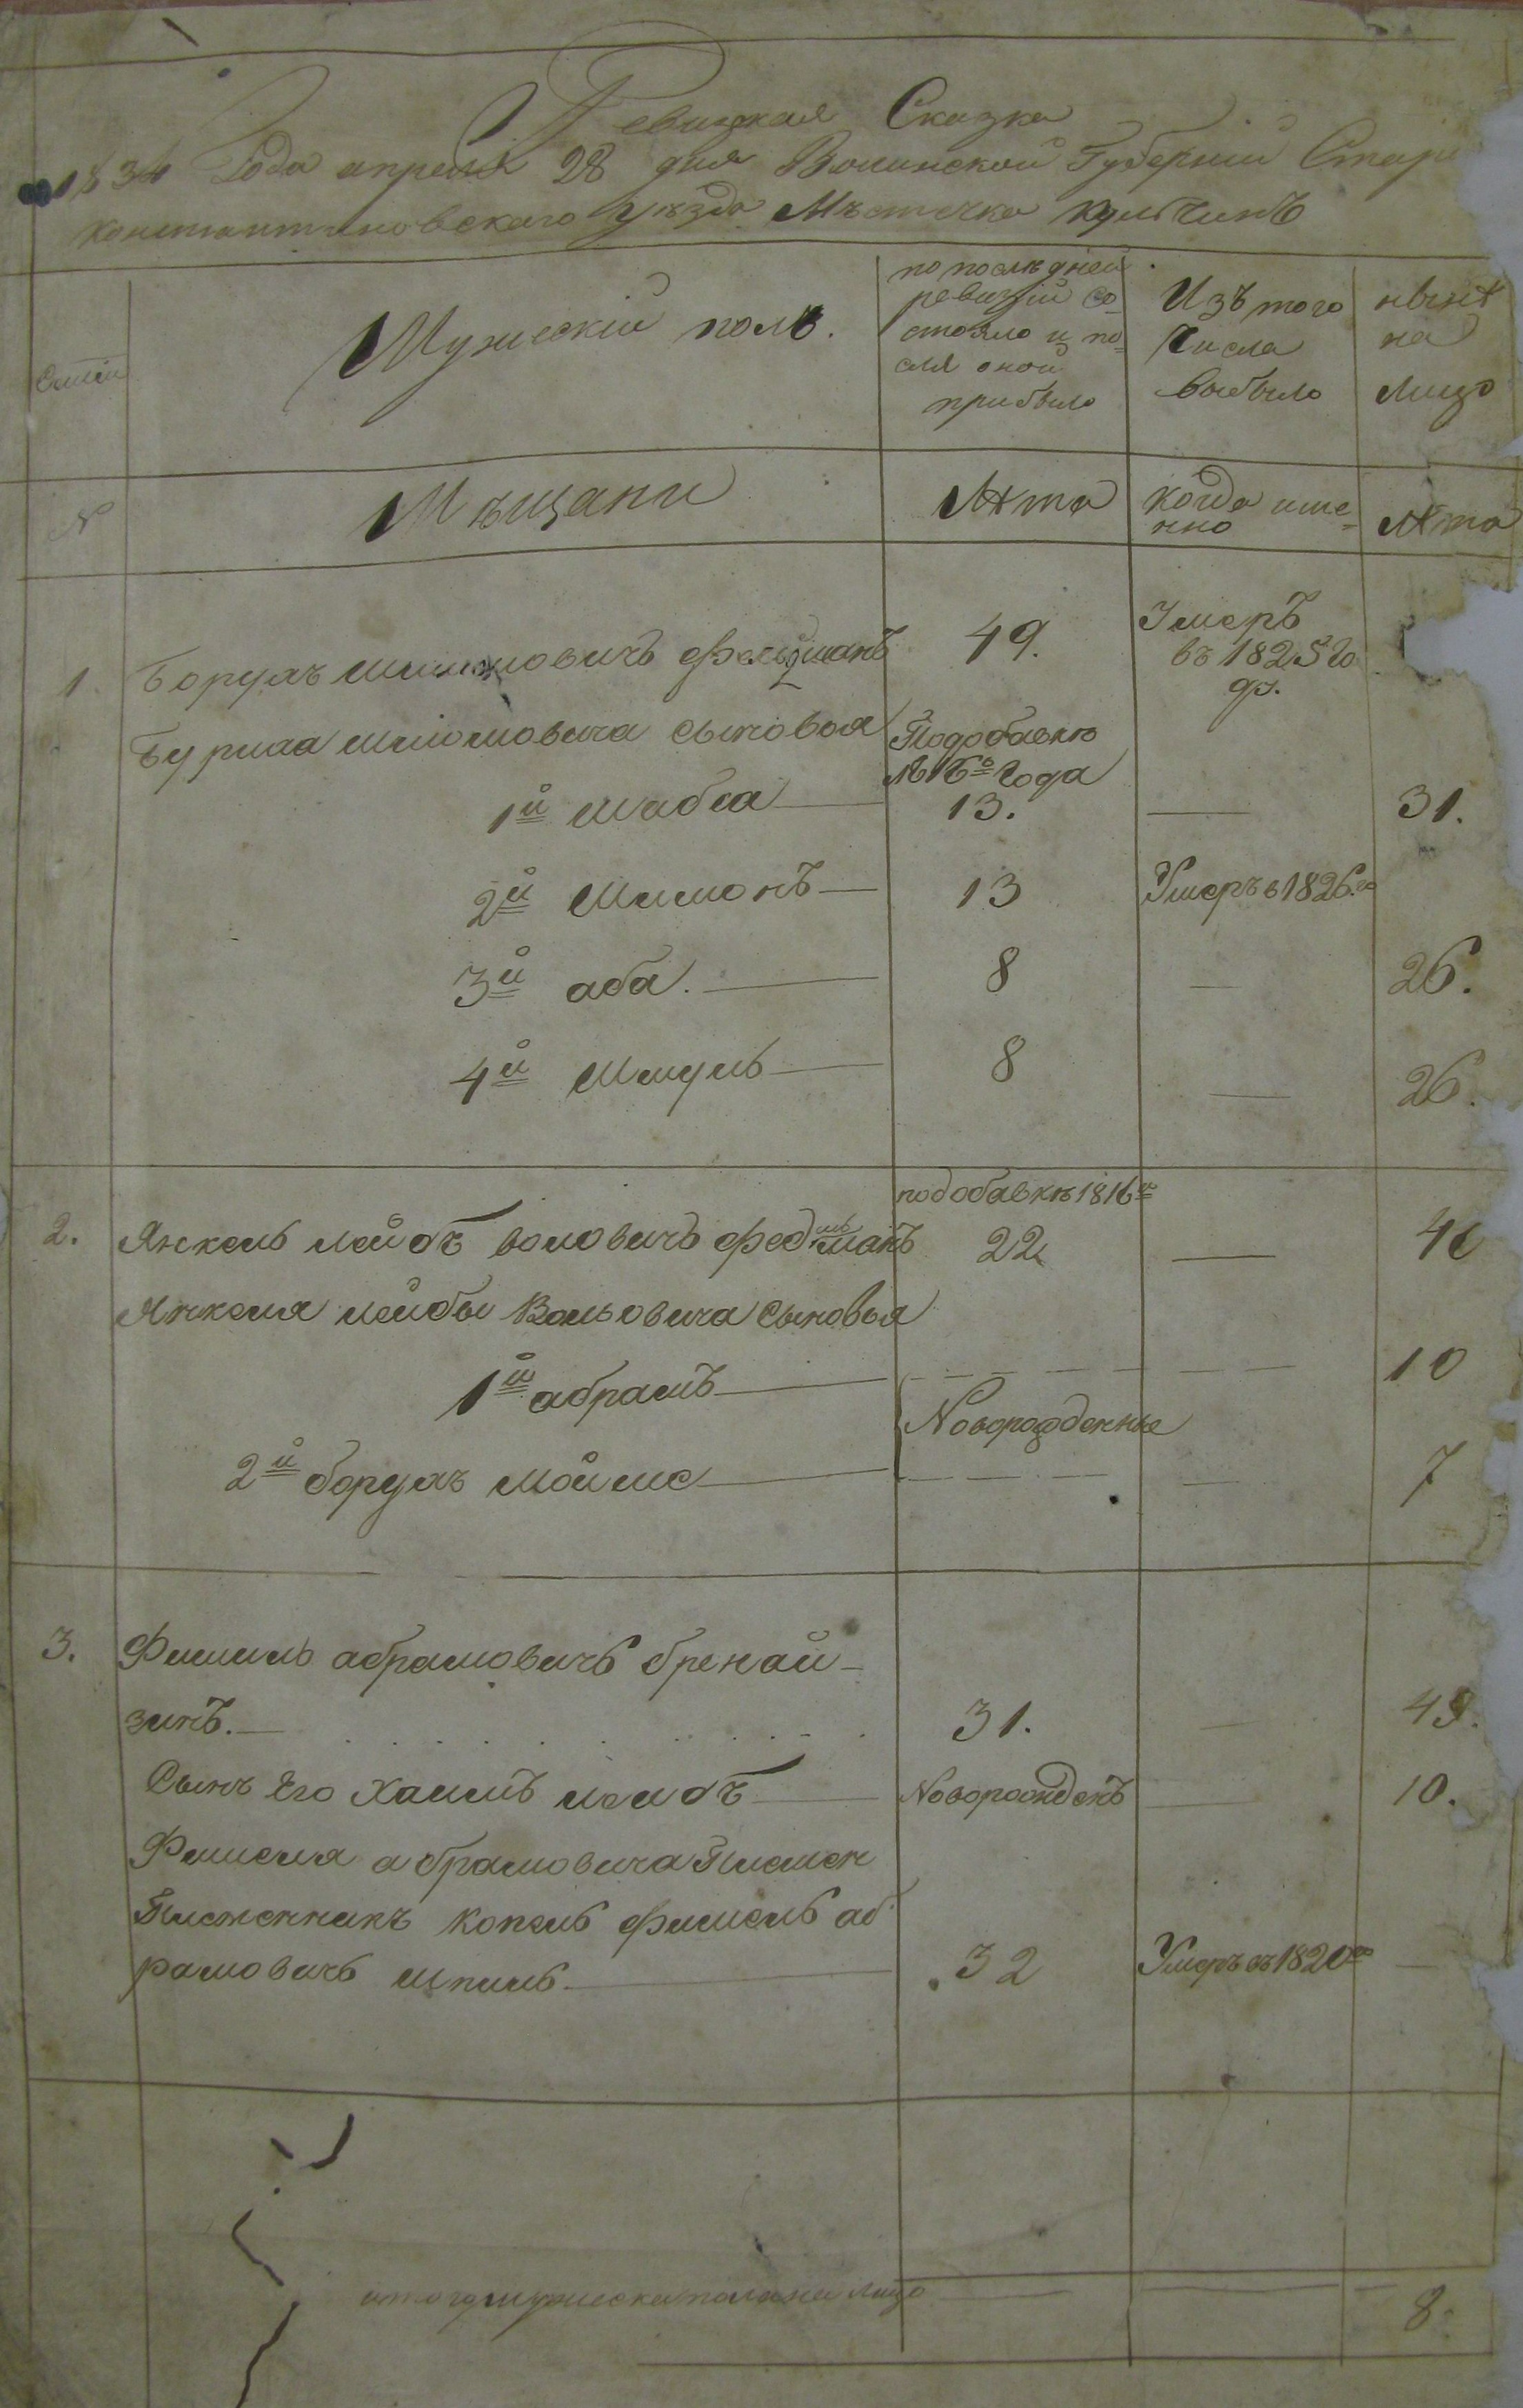 Ревизкая Сказка
1834 Года апреля 28 дня Волинской Губернии Старо
константиновскаго уѣзда Мѣстечка Кульчинъ
Семьи
Мужескій полъ.
по послѣдней
ревизіи со-
стояло и по-
сля оной
прибыло
Изъ того
числа
выбыло
нынѣ
на
лицо
N
Мѣщани
Лѣта
когда име-
нно
Лѣта
1. Борухъ Шлиомовичъ Фельдманъ 49. Умеръ
въ 1825 го
ду.
Буруха Шлиомовича сыновья Подобавкю
1816го Года
1й Шабса 13. 31.
2й Шимонъ 13 Умеръ в 1826го
3й аба. 8 26.
4й Шмуль 8 26.
подобавкѣ 1816й
2. Янкель лейбъ воловичъ Фельдманъ 22 40
Янкеля лейбы Вольовича Сыновья
1й абрамъ 10
Новорожденные
2й борухъ мойше 7
3. Фишель абрамовичъ бренай-
зинъ. 31. 49.
Сынъ Его Хаимъ лейбъ Новорожденъ 10.
Фишеля абрамовича Племен
Племенникъ копель фишель аб
рамовичъ шпиль 32 Умеръ въ 1820го
итого мужеска пола на лицо 8.